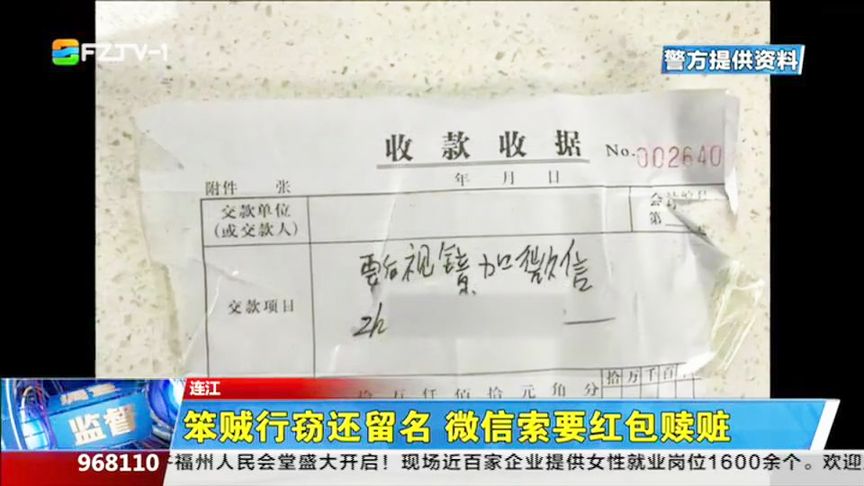 FZTV-1
警方提供资料
收款收据 No.002640
年 月 日
附件 张
交款单位
(或交款人)
第
交款项目
要后视镜加微信
zh
拾万千百
拾万仟佰拾元角分
连江
监督
笨贼行窃还留名 微信索要红包赎赃
968110 福州人民会堂盛大开启！现场近百家企业提供女性就业岗位1600余个。欢迎